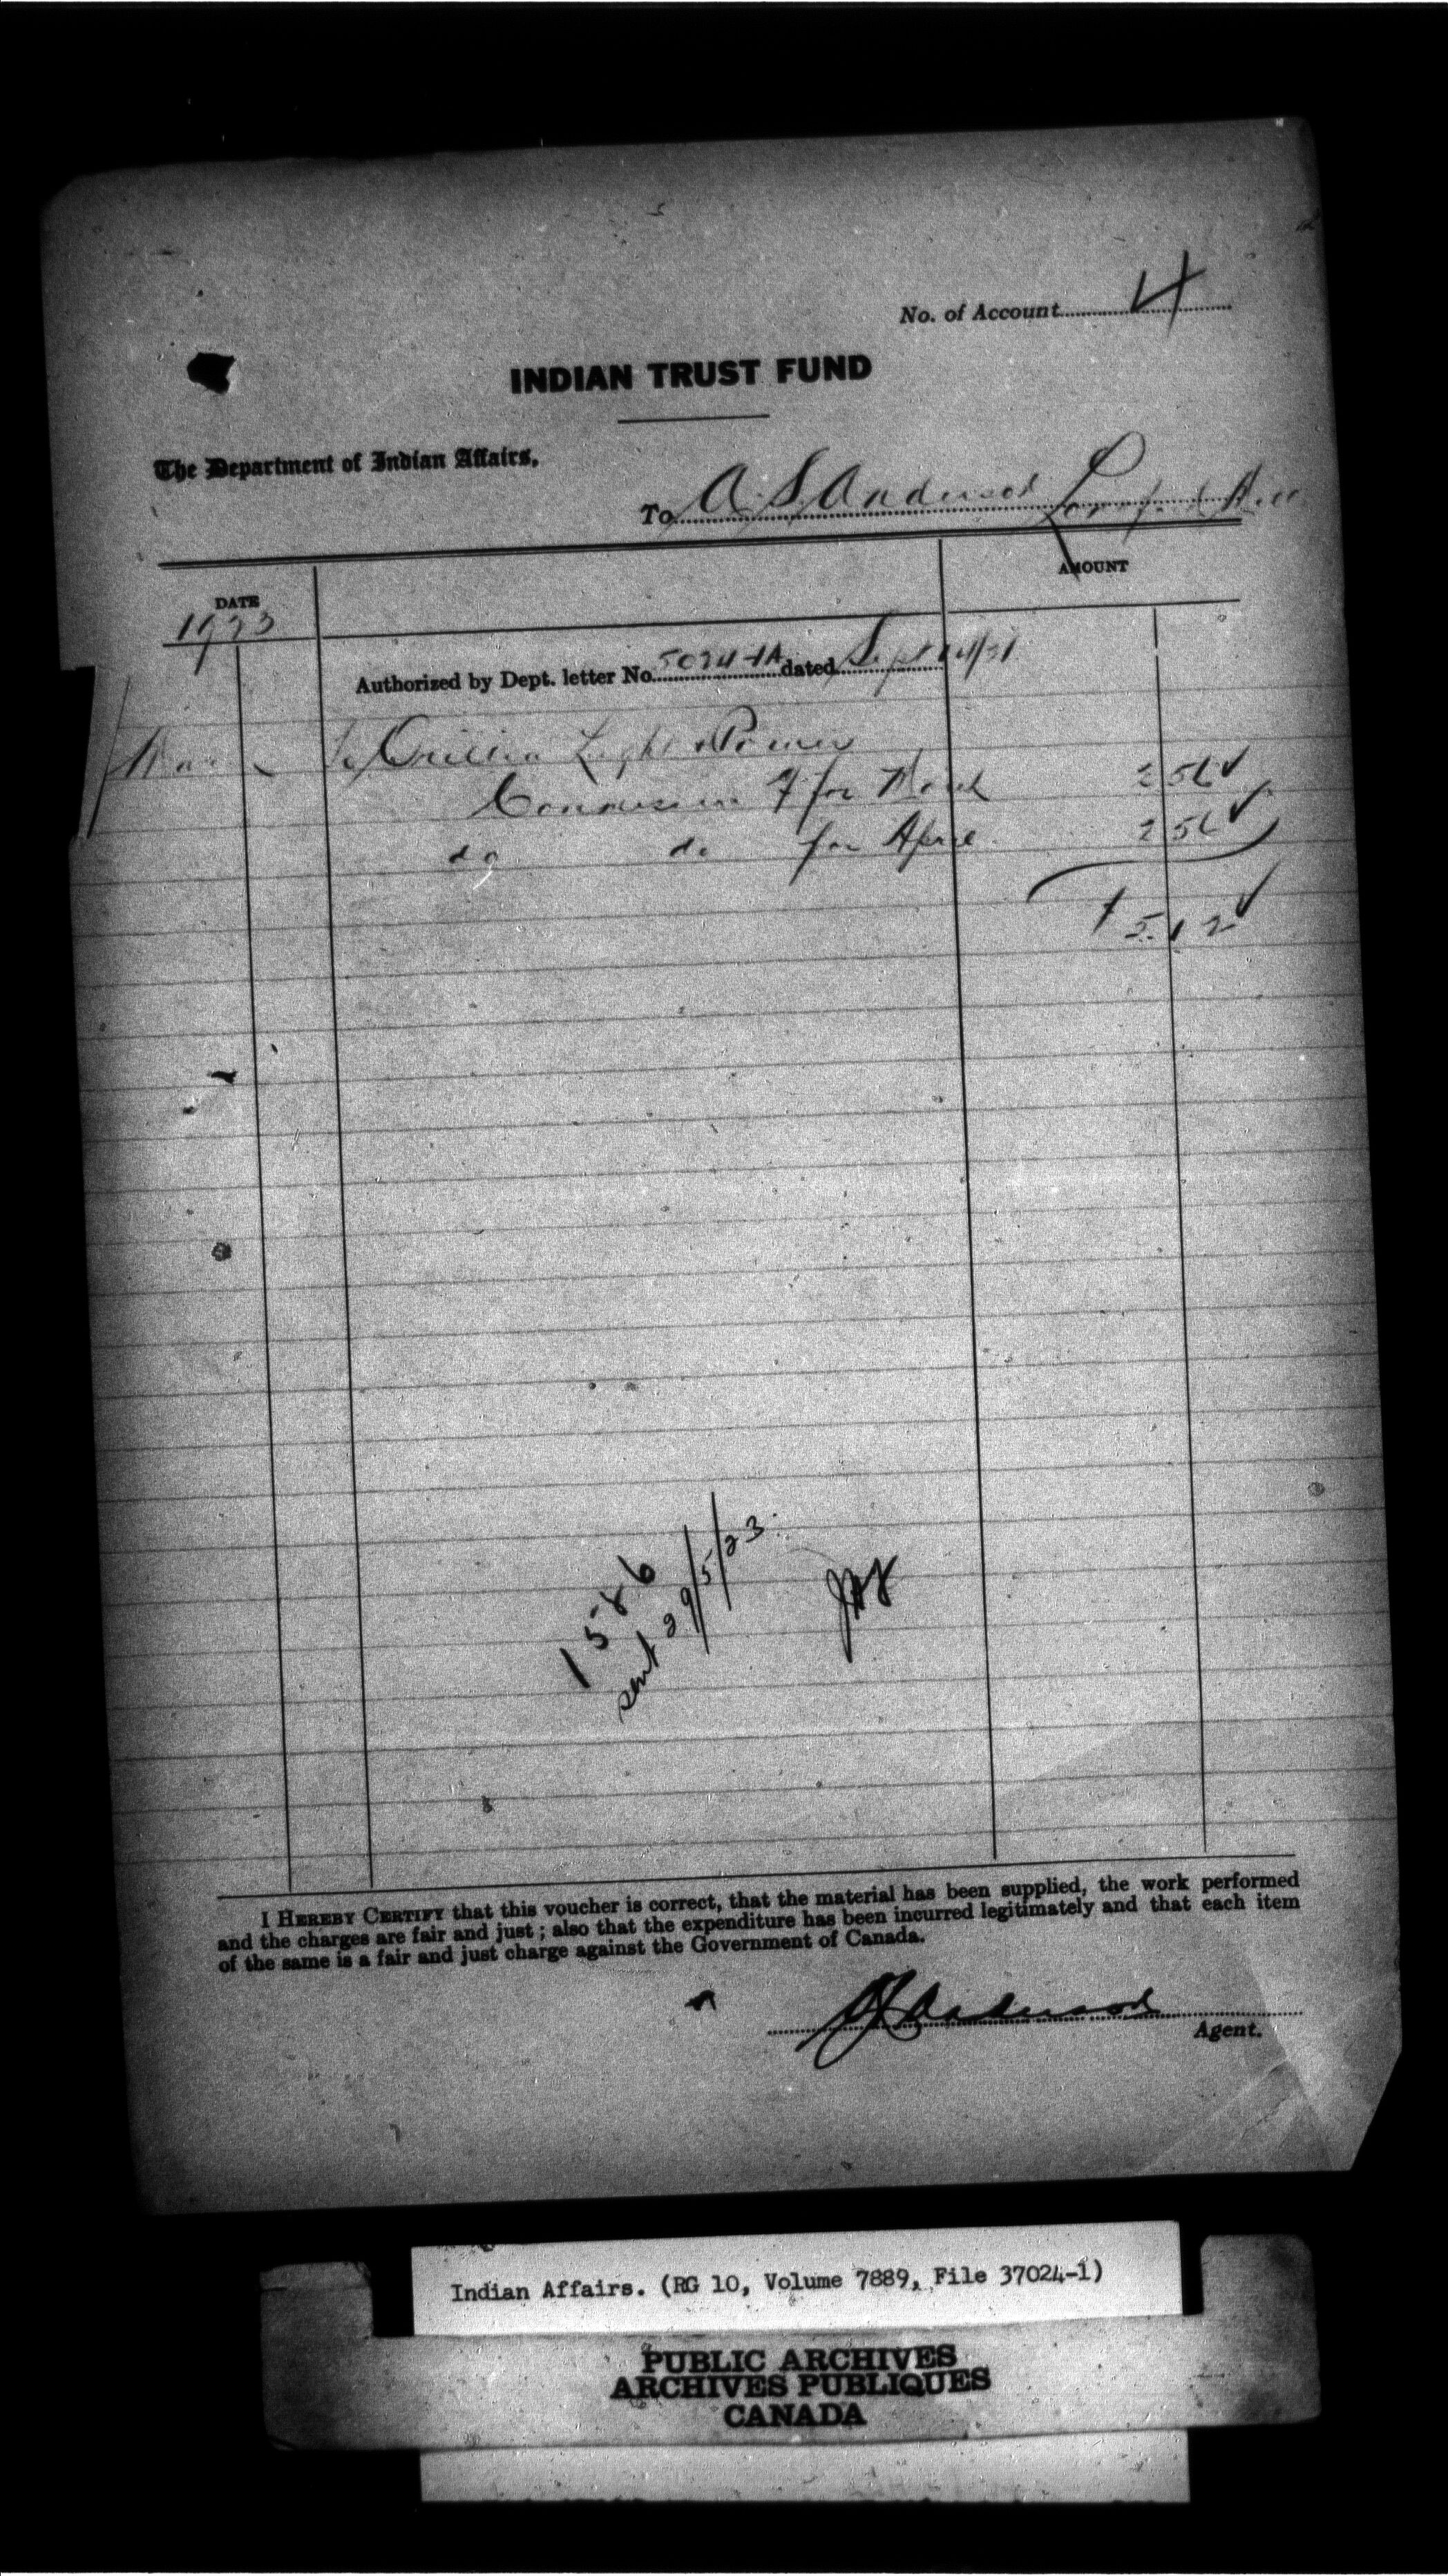 No. of Account 4
INDIAN TRUST FUND
The Department of Indian Affairs,
To A. S. Anderson
DATE
AMOUNT
1923
Authorized by Dept. letter No. dated Sept
To Orillia Light & Power
Commission for March 2 56 ✓
do do for April 2 56 ✓
5.12 ✓
1586
sent 29/5/23.
I HEREBY CERTIFY that this voucher is correct, that the material has been supplied, the work performed
and the charges are fair and just; also that the expenditure has been incurred legitimately and that each item
of the same is a fair and just charge against the Government of Canada.
Anderson
Agent.
Indian Affairs. (RG 10, Volume 7889, File 37024-1)
PUBLIC ARCHIVES
ARCHIVES PUBLIQUES
CANADA